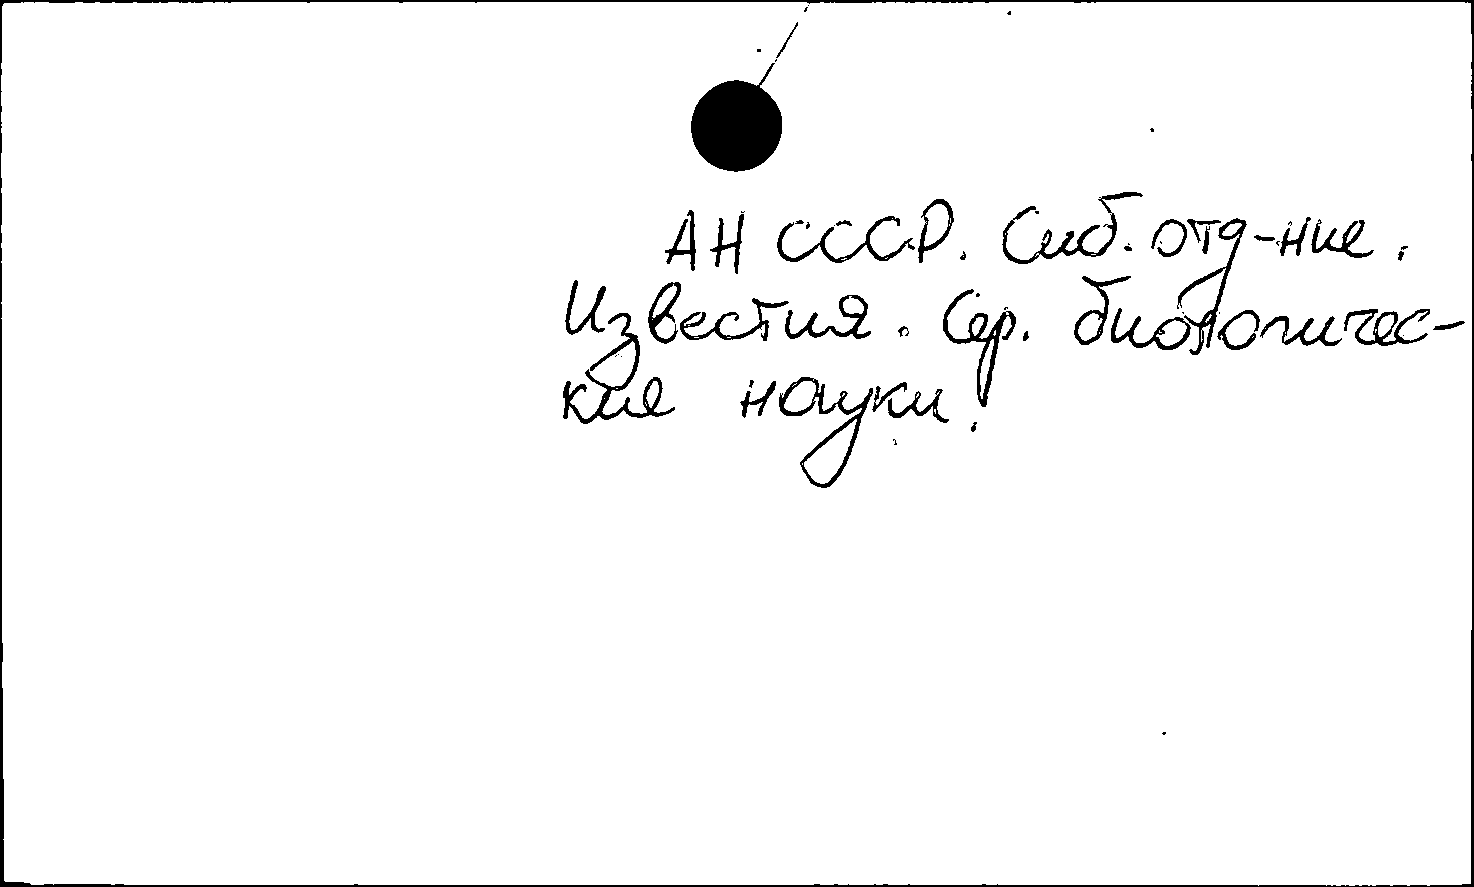 АН СССР. Сиб. отд-ние.
Известия. Сер. биологичес-
кие науки.